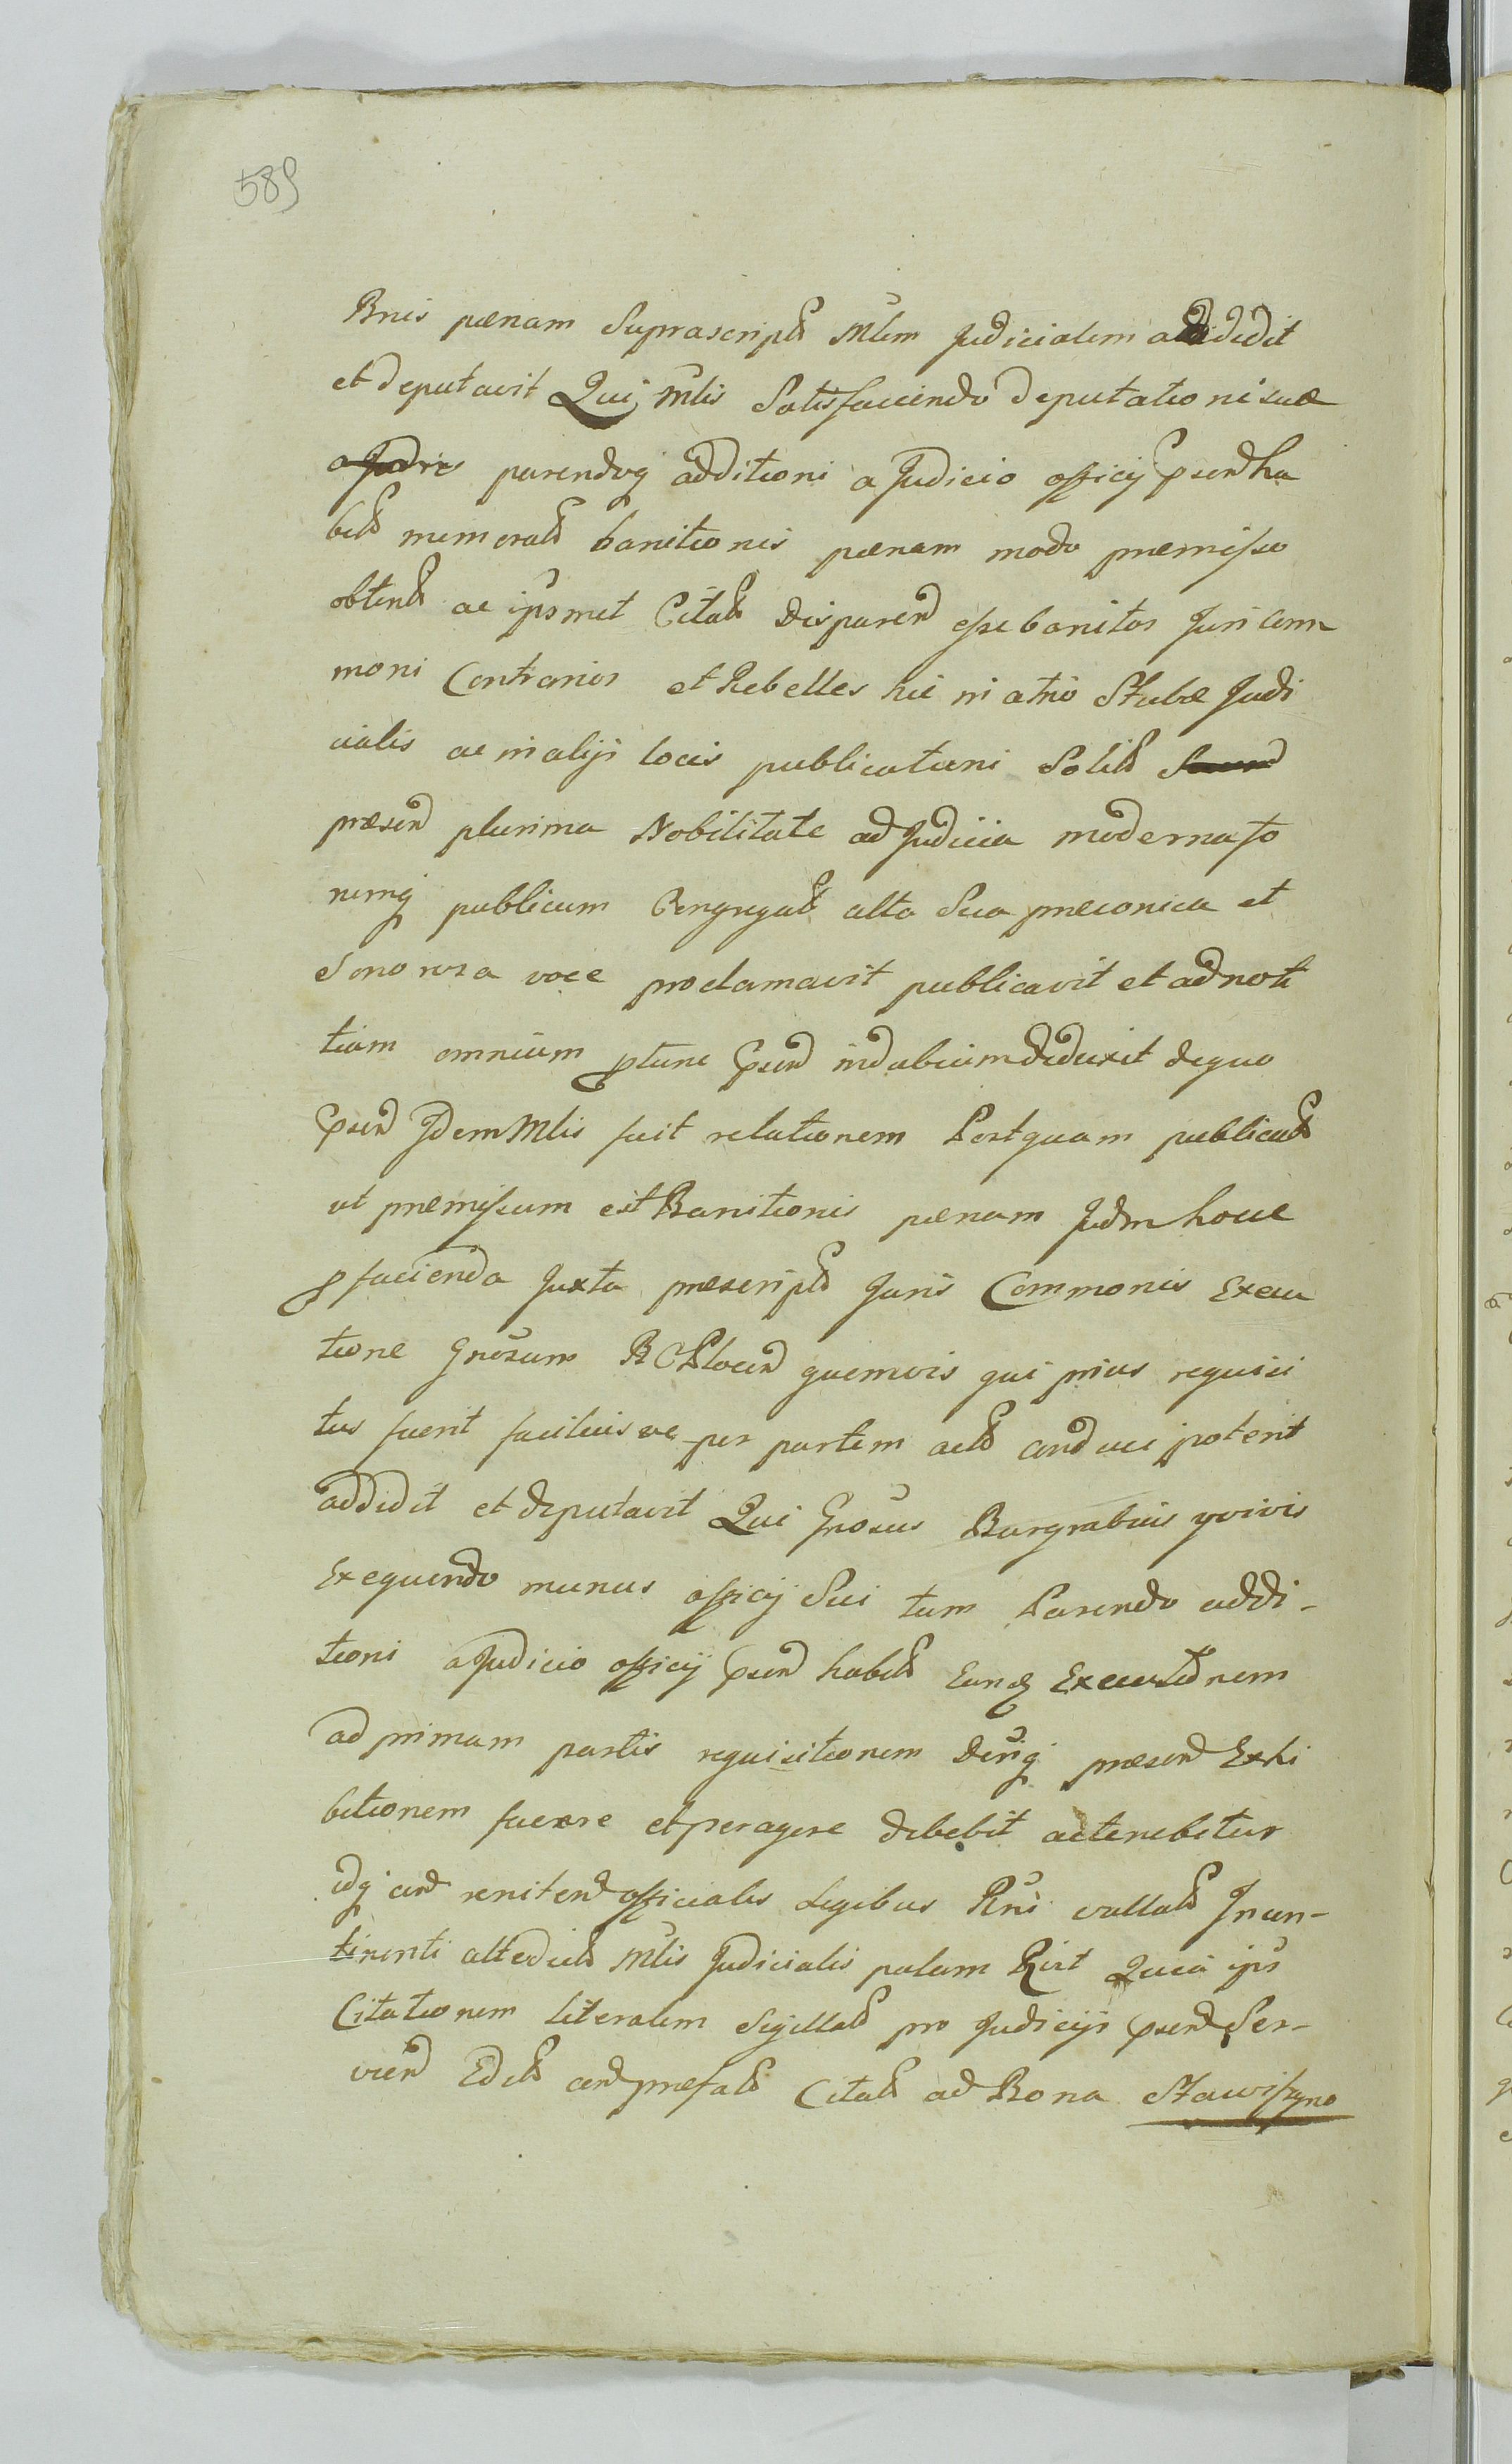 589
Bnis pænam Suprascriptt Mlem Judicialem addidit
et deputavit Qui Mlis Satisfaciendo deputationi suæ
parendoq additioni a Judicio officij psend ha
bitt memoratt banitionis pænam modo præmisso
obtentt ac ipsmet Citatt disparend esse banitos Juri Com
moni Contrarios et Rebelles hic in atrio Stubæ Judi
cialis ac in alijs locis publicationi Solitt
præsend plurima Nobilitate ad Judicia moderna fo
rumq publicum Congregatt alta Sua præconica et
Sonorosa voce proclamavit publicavit et ad noti
tiam omnium ptunc psend indubiam deduxit de quo
psend Idem Mlis fecit relationem Postquam publicatt
ut præmissum est Banitionis pænam Judm hocce
p facienda Juxta præscriptt Juris Commonis Execu
tione Gnosum B C Plocen quemvis qui prius requisi
tus fuerit faciliusve per partem actt conduci poterit
addidit et deputavit Qui Gnosus Burgrabius quivis
Exequendo munus officij Sui tum Parendo addi-
tioni a Judicio officij psend habitt Eandq Executionem
ad primam partis requisitionem præsend Exhi
bitionem facere et peragere debebit ac tenebitur
idq cend renitend officiales Legibus Rni vallatt Incon-
tinenti citatt Mlis Judicialis palam Rist Quia ips
Citationem literalem Sigillatt pro Judicijs psend Ser-
viend Editt cend præfatt Citatt ad Bona Stawiszyno